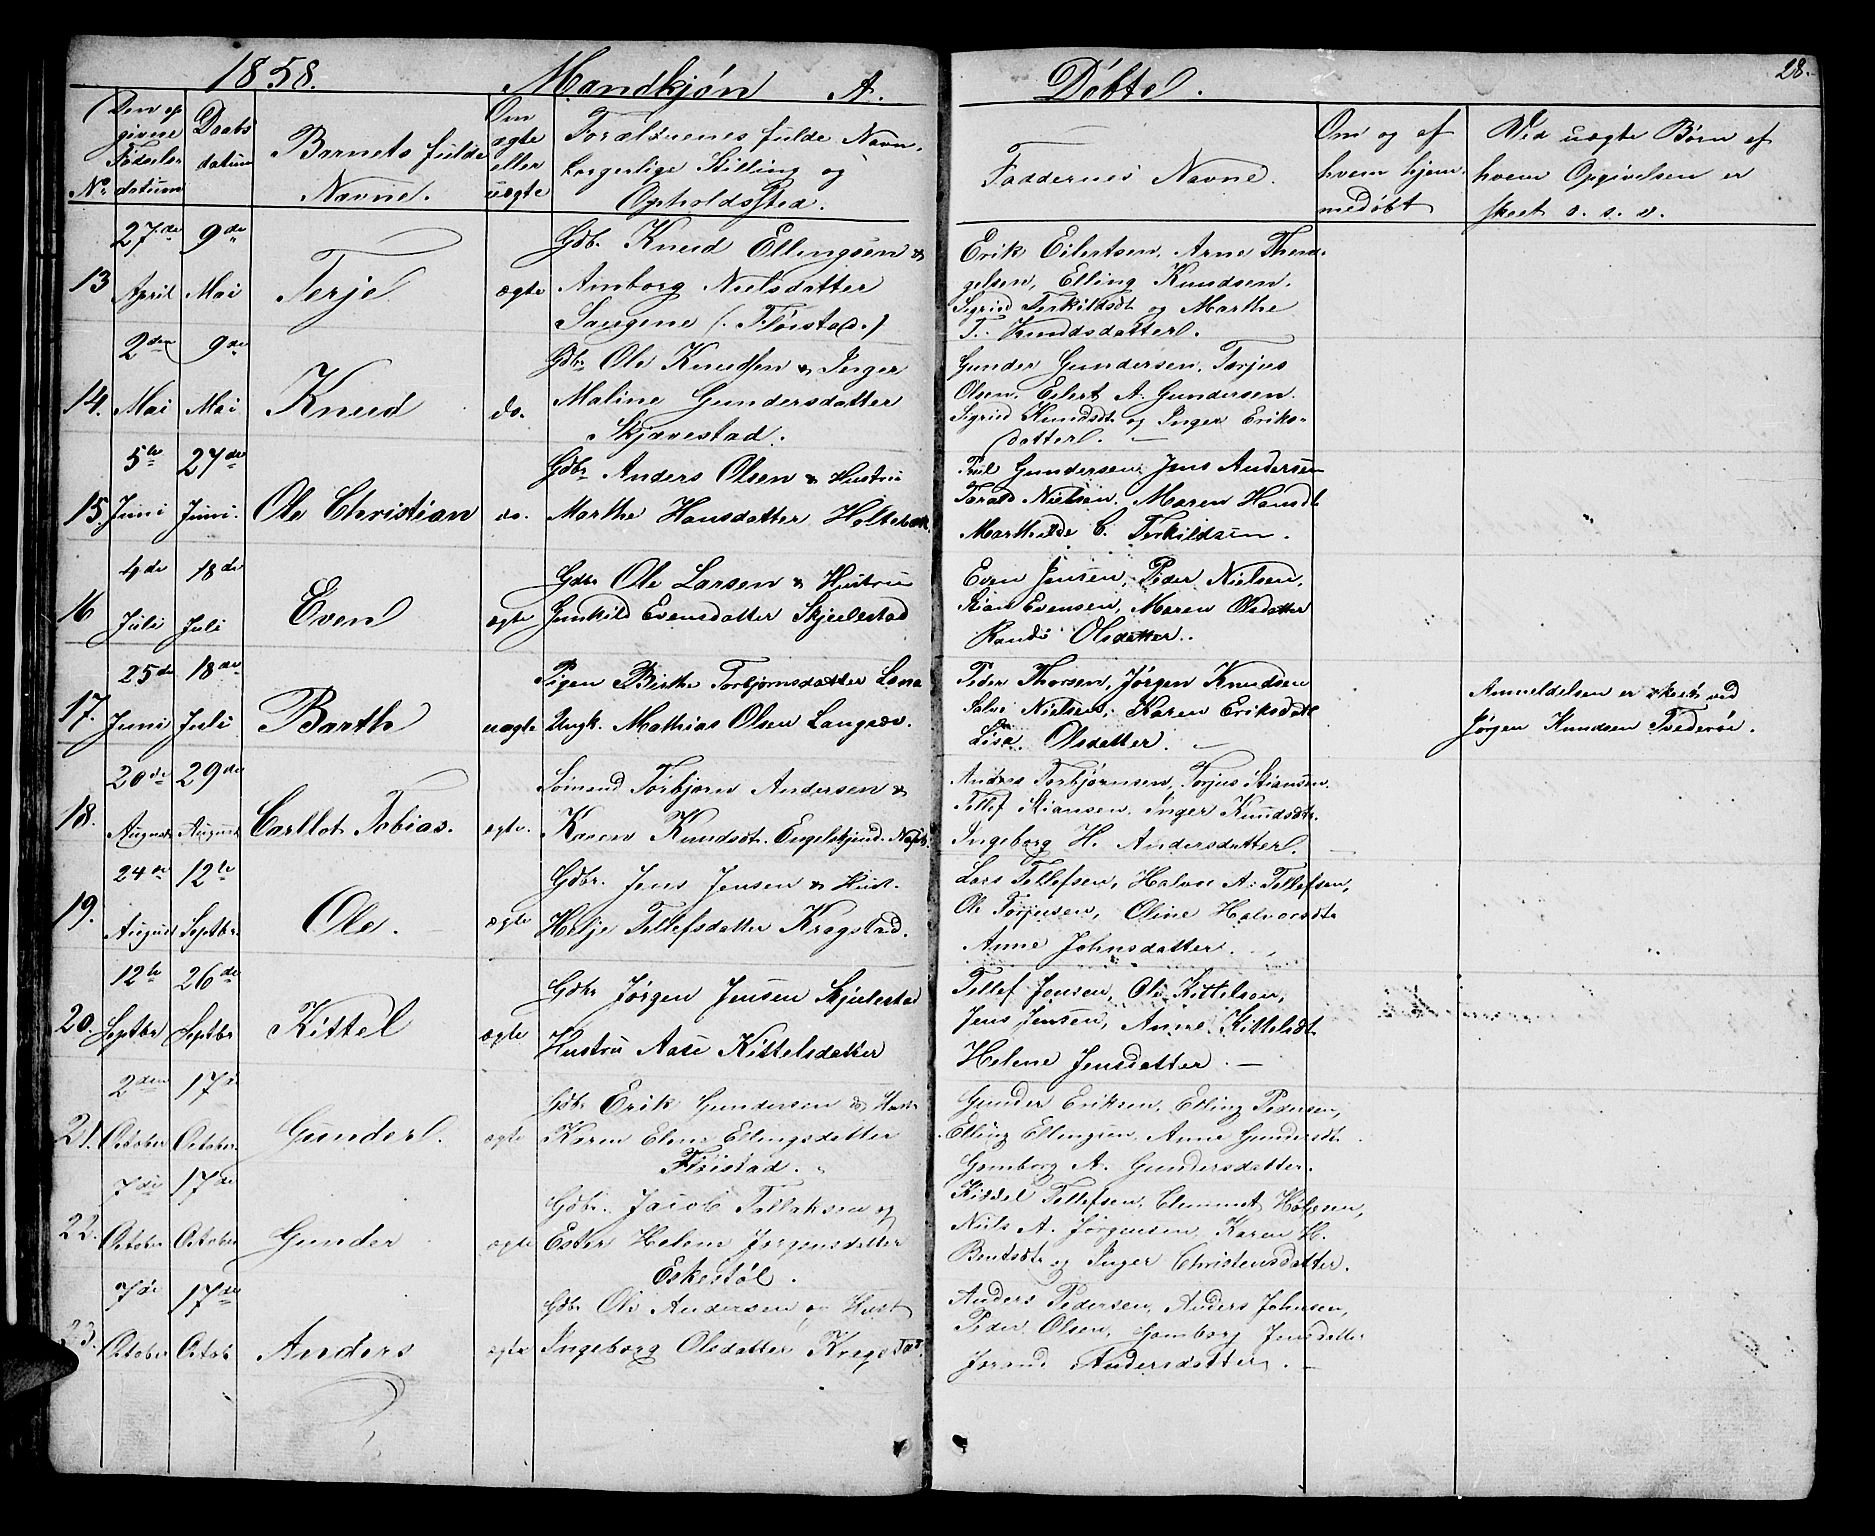 1858. Mandkjøn A. Døbte. 28.
No. Den opgivne Fødsels datum
Daabs datum
Barnets fulde Navne.
Om ægte eller uægte
Forældrenes fulde Navn, borgerlige Stilling og Opholdssted.
Faddernes Navne.
Om og af hvem hjemmedøbt
Ved uægte Børn af hvem Opgivelsen er skeet o. s. v.
13 27de April 9de Mai Terje ægte
Gdb. Knud Ellingsen &
Amborg Nielsdatter
Saugene (Fløistad.)
Erik Eilertsen, Arne Thend-
gelsen, Elling Knudsen.
Sigrid Terkildsdt og Marthe
T. Knudsdatter.
14. 2den Mai 9de Mai Knud do.
Gdbr Ole Knudsen & Inger
Maline Gundersdatter
Skjævestad.
Gunder Gundersen, Torjus
Olsen, Eilert A. Gundersen.
Sigrid Knudsdt og Inger Eriks-
datter. —
15. 5te Juni 27de Juni. Ole Christian do.
Gdbr Anders Olsen & Hustru
Marthe Hansdatter
Gundersen, Jens Andersen
Tarald Nielsen, Maren Hansdt
Mathilde C. Terkildsen.
16 4de Juli 18de Juli Even ægte
Gdbr Ole Larsen & Hustru
Gunhild Evensdatter Skjulestad
Even Jensen, Peder Nielsen,
Stian Evensen, Maren Olsdatter
Randi Olsdatter.
17. 25de Juni 18de Juli Barth uægte
Pigen Birthe Torbjørnsdatter Lona
Ungk. Mathias Olsen
Peder Thorsen, Jørgen Knudsen
Salve Nielsen, Karen Eriksdatt
Lisa Olsdatter. —
Anmeldelsen er skeet ved
Jørgen Knudsen Tvederøe.
18. 20de August 29de August Carllot Tobias. ægte.
Sømand Torbjørn Andersen &
Karen Knudsdt.
Anders Torbjørnsen, Torjus Stiansen
Tellef Stiansen, Inger Knudsdtr.
Ingeborg H. Andersdatter.
19. 24de August 12te Septbr. Ole. ægte
Gdbr. Jens Jensen & Hust.
Helje Tellefsdatter Kragstad.
Lars Tellefsen, Halvor A. Tellefsen,
Ole Torjusen, Oline Halvorsdtr
Anne Johnsdatter.
20. 12te Septbr 26de Septbr Kittel ægte
Gdbr Jørgen Jensen Skjulestad
Hustru Aase Kittelsdatter
Tellef Jensen, Ole Kittelsen,
Jens Jensen, Anne Kittelsdt
Helene Jensdatter. —
21. 2den October 17de October Gunder. ægte
Gdb Erik Gundersen & Hust
Karen Elene Ellingsdatter
Fløistad.
Gunder Eriksen, Elling Pedersen,
Elling Ellingsen, Anne Gundersdt.
Gomborg A. Gundersdatter.
22. 7de October 17de October Gunder ægte
Gdbr. Jacob Tellefsen og
Ester Helene Jørgensdatter
Eskestøl.
Kiddel Tellefsen, Clemmet
Niels A. Jørgensen, Karen H.
Bentsdtr og Inger Christensdatter.
23. 7de October 17de Octob Anders ægte
Gdbr Ole Andersen og Hust
Ingeborg Olsdatter
Anders Pedersen, Anders Johnsen,
Peder Olsen, Gomborg Jensdatter
Jorand Andersdatter. —